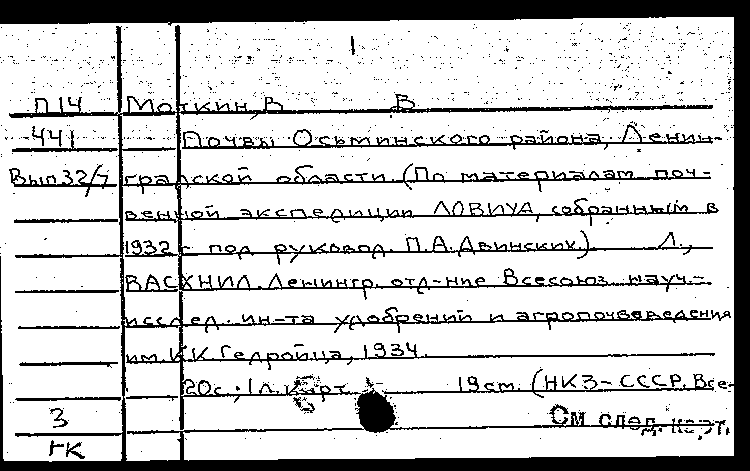 1
П14 Моткин, В В
441 Почвы Осьминского района, Ленин-
Вып.32/7 градской области (По материалам поч-
венной экспедиции ЛОВИУА, собранным в
1932 г под руковод. П.А.Двинских). Л.,
ВАСХНИЛ. Ленингр. отд-ние Всесоюз. науч.-
исслед. ин-та удобрений и агропочвоведения
им. К.К. Гедройца, 1934.
20с.; 1 л. карт. 19 см. (НКЗ-СССР. Все-
3 См след. карт.
гк